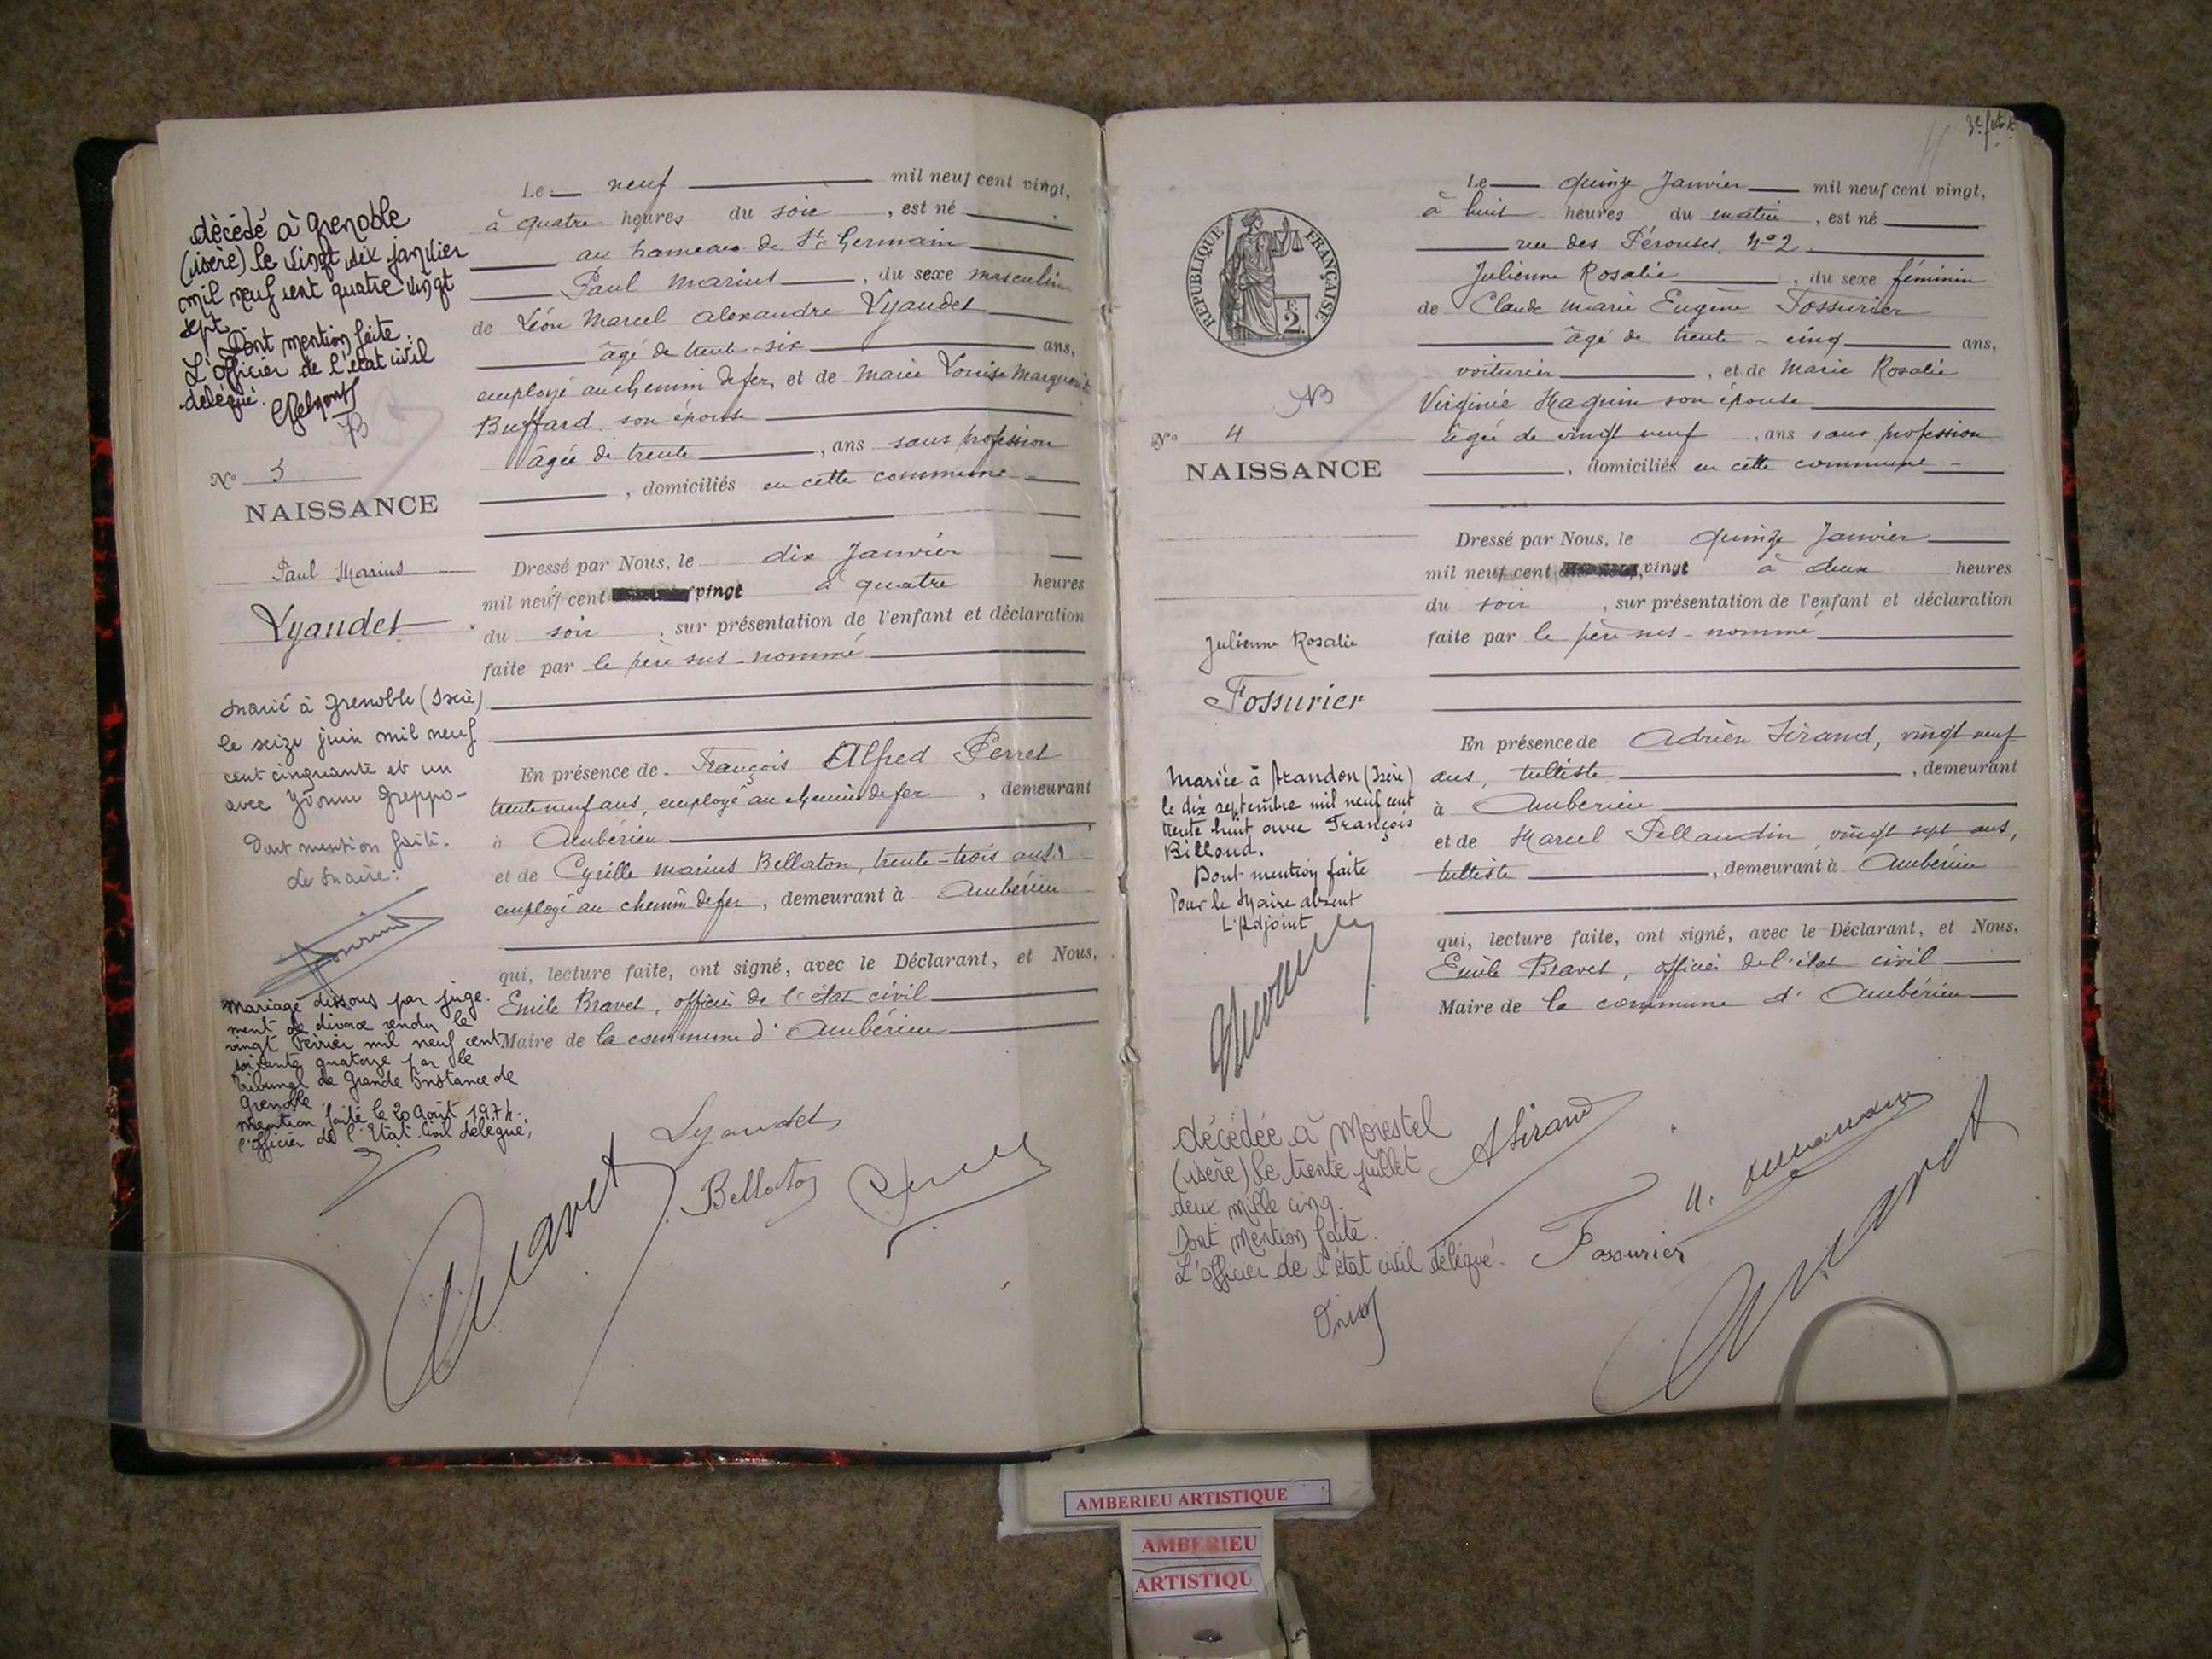 décédé à Grenoble
(isère) le vingt six janvier
mil neuf cent quatre vingt
sept.
Dont mention faite.
L'officier de l'état civil
délégué.
N° 3
NAISSANCE
Paul Marius
Lyaudet
Marié à Grenoble (Isère)
le seize juin mil neuf
cent cinquante et un
avec Yvonne Greppo-
Dont mention faite.
Le Maire:
Mariage dissous par juge-
ment de divorce rendu le
vingt Février mil neuf cent
soixante quatorze par le
Tribunal de Grande Instance de
Grenoble.
Mention faite le 20 Août 1974.
l'officier de l'Etat Civil délégué,
Le neuf mil neuf cent vingt,
à quatre heures du soir, est né
au hameau de St Germain
Paul Marius, du sexe masculin
de Léon Marcel Alexandre Lyaudet
âgé de trente-six ans,
employé au chemin de fer, et de Marie Louise Marguerite
Buffard son épouse
âgée de trente, ans sans profession
, domiciliés en cette commune
Dressé par Nous, le dix Janvier
mil neuf cent vingt à quatre heures
du soir, sur présentation de l'enfant et déclaration
faite par le père sus-nommé
En présence de François Alfred Perret
trente neuf ans, employé au chemin de fer, demeurant
à Ambérieu
et de Cyrille Marius Bellaton, trente-trois ans
employé au chemin de fer, demeurant à Ambérieu
qui, lecture faite, ont signé, avec le Déclarant, et Nous,
Emile Bravet, officier de l'état civil
Maire de la commune d'Ambérieu
Lyaudet
Bellaton
Bravet
3e f
REPUBLIQUE FRANÇAISE
F.
2.
N° 4
NAISSANCE
Julienne Rosalie
Fossurier
Mariée à Brandon (Isère)
le dix septembre mil neuf cent
trente huit avec François
Billoud.
Dont mention faite
Pour le Maire absent
L'Adjoint
décédée à Morestel
(isère) le trente juillet
deux mille cinq.
Dont mention faite.
L'officier de l'état civil délégué.
Le quinze Janvier mil neuf cent vingt,
à huit heures du matin, est né
rue des Pérouses, N° 2
Julienne Rosalie, du sexe féminin
de Claude Marie Eugène Fossurier
âgé de trente-cinq ans,
voiturier, et de Marie Rosalie
Virginie Maguin son épouse
âgée de vingt neuf, ans sans profession
, domiciliés en cette commune
Dressé par Nous, le quinze Janvier
mil neuf cent vingt à deux heures
du soir, sur présentation de l'enfant et déclaration
faite par le père sus-nommé
En présence de Adrien Sirand, vingt neuf
ans, tulliste, demeurant
à Ambérieu
et de Marcel Pellaudin, vingt sept ans,
tulliste, demeurant à Ambérieu
qui, lecture faite, ont signé, avec le Déclarant, et Nous,
Emile Bravet, officier de l'état civil
Maire de la commune d'Ambérieu
A Sirand
Fossurier
Bravet
AMBERIEU ARTISTIQUE
AMBERIEU
ARTISTIQU